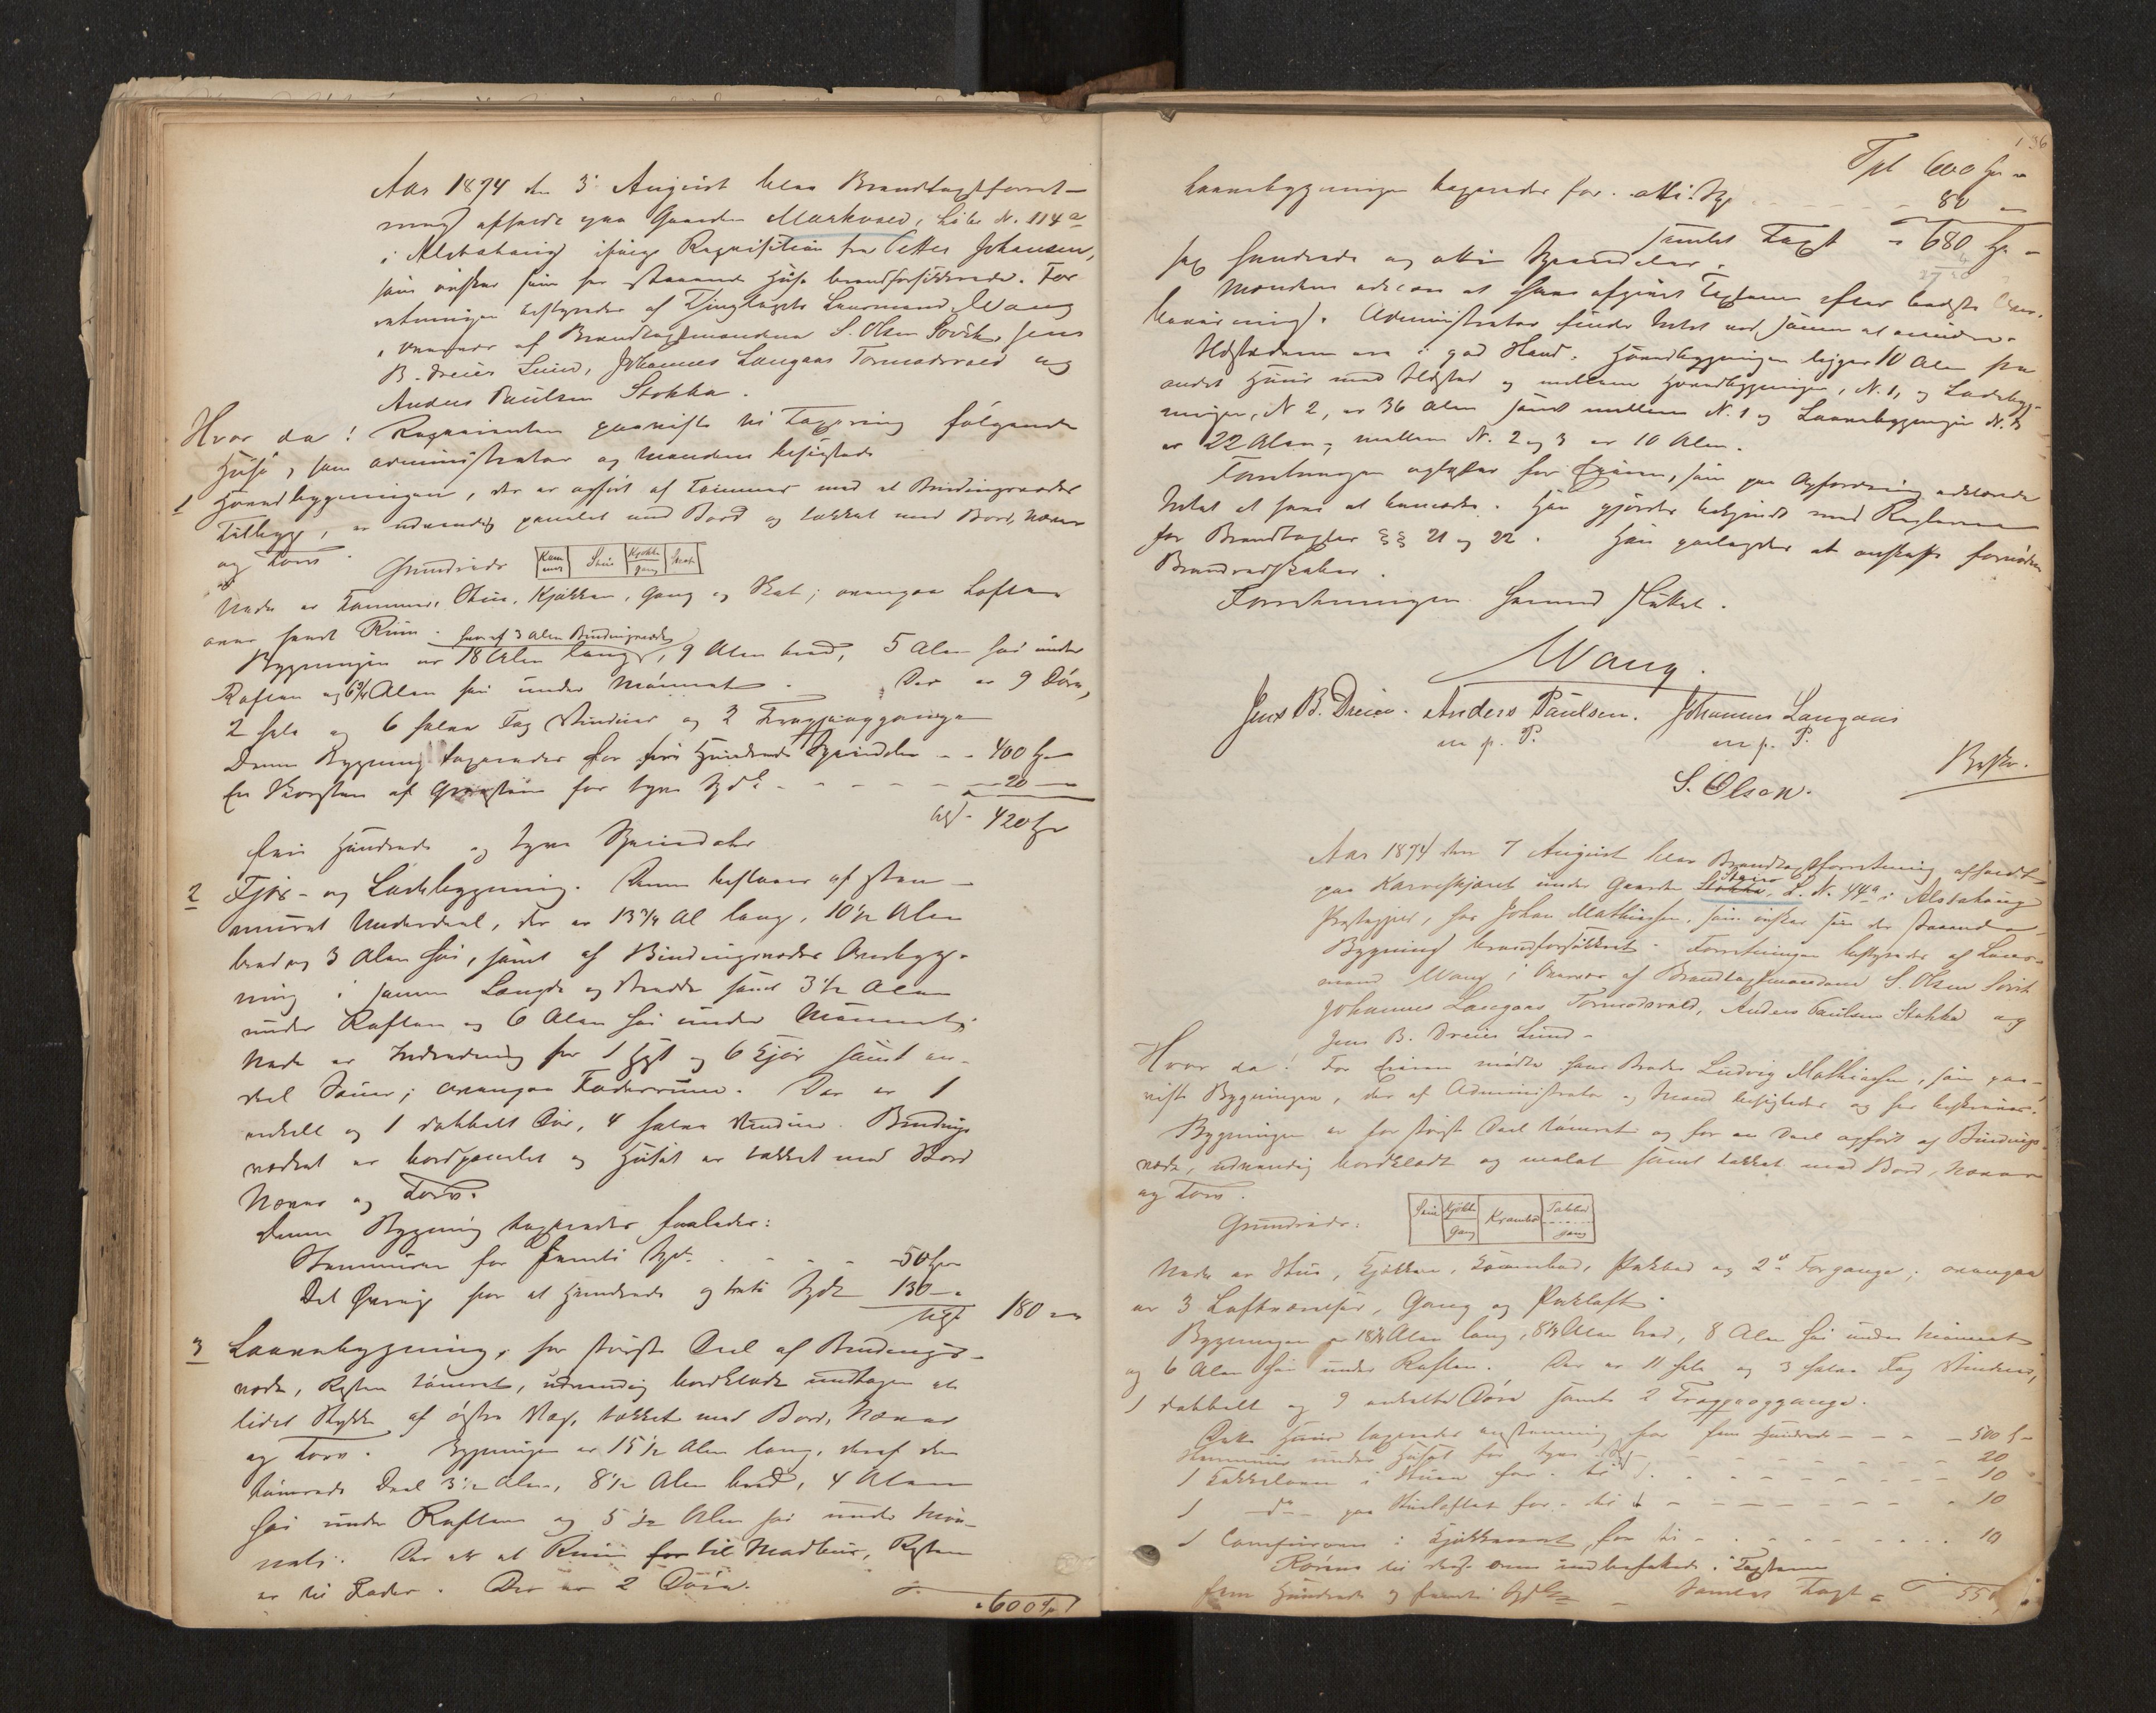 Aar 1874 den 3' August blev Brandtaxtforret-
ning afholdt paa Gaarden Markvold, Løbe N. 114a
i Alstahaug ifølge Requisition fra Petter Johansen,
som ønsker sine her staaende Huse brandforsikrede. For
retningen bestyredes af Thinglagets Lensmand Wang
i Overvær af Brandtaxtmændene S. Olsen Søvik, Jens
B. Dreier Lund, Johannes Langaas Tormodsvold og
Anders Paulsen Stokka.
Hvor da! Requirenten paaviste til Taxering følgende
Huse, som Administrator og Mændene besigtede
1 Hovedbygningen, der er opført af Tømmer med et Bindingsværks
Tilbygg, er udvendig panelet med Bord og tækket med Bord, Næver
og Torv. Grundrids Kam mer Stue Kjøkken gang Skot
Nede er Kammer, Stue, Kjøkken, Gang og Skot; ovenpaa Loftene
over hvert Rum. heraf 3 Alen Bindingsværk
Bygningen er 18 Alen lang, 9 Alen bred, 5 Alen høi under
Raften og 6¾ Alen høi under Mønnet. Der er 9 Døre,
2 hele og 6 halve Fag Vinduer og 2 Trappeopgange
Denne Bygning taxeredes for fire Hundrede Speciedaler - - 400
En Skorsten af Graasten for tyve Spd. - - - - 20 -
420
fire Hundrede og tyve Speciedaler
2 Fjøs- og Ladebygning. Denne bestaaer af sten-
muret Underdeel, der er 13¾ Al lang, 10½ Alen
bred og 3 Alen høi, samt af Bindingsværks Overbyg-
ning i samme Længde og Bredde samt 3½ Alen
under Raften og 6 Alen høi under Mønnet;
Nede er Indredning for 1 Hest og 6 Kjør samt en
deel Sauer; ovenpaa Foderrum. Der er 1
enkelt og 1 dobbelt Dør, 4 halve Vinduer. Bindings
værket er bordpanelet og Huset er tækket med Bord
Næver og Torv.
Denne Bygning taxeredes saaledes:
Stenmuren for femti Spd. - - - - 50
Det Øvrige for et Hundrede og treti Spdl 130 -
180 -
3 Laanebygning, for største Deel af Bindings-
værk, Resten tømret, udvendig bordklædt undtagen et
lidet Stykke af østre Væg, tækket med Bord, Næver
og Torv. Bygningen er 15½ Alen lang, deraf den
tømrede Deel 3½ Alen, 8½ Alen bred, 4 Alen
høi under Raften og 5½ Alen høi under Møn-
net. Der er et Rum for til Madbur, Resten
er til Foder. Der er 2 Døre.
600
136
Tpt 600
Laanebygningen taxeredes for otti Spd - - - - 80
samlet Taxt 680
sex Hundrede og otti Speciedaler.
Mændene erklærede at have afgivet Taxterne efter bedste Over-
beviisning. Administrator finder Intet ved samme at erindre.
Ildstederne ere i god Stand. Hovedbygningen ligger 10 Alen fra
andet Huus med Ildsted og mellem Hovedbygningen, N. 1, og Ladebyg-
ningen, N 2, er 36 Alen samt mellem N. 1 og Laanebygningen N. 3
er 22 Alen; mellem N. 2 og 3 er 10 Alen.
Forretningen oplæstes for Eieren, som paa Opfordring erklærede
Intet at have at bemærke. Han gjordes bekjendt med Reglerne
for Brandtaxter §§ 21 og 22. Han paalagdes at anskaffe fornødne
Brandredskaber.
Forretningen hermed sluttet.
Wang.
Jens B. Dreier. Anders Paulsen. Johannes Langaas
m p. P. m p. P.
S. Olsen.
Aar 1874 den 7 August blev Brandtaxtforretning afholdt
paa Karveskjæret under Gaarden Stokka L. N. 44a i Alstahaug
Præstegjeld, hos Johan Mathiesen, som ønsker sin der staaende
Bygning brandforsikret. Forretningen bestyredes af Lens-
mand Wang i Overvær af Brandtaxtmændene S. Olsen Søvik
Johannes Langaas Tormodsvold, Anders Paulsen Stokka og
Jens B. Dreier Lund.
Hvor da! For Eieren mødte hans Broder Ludvig Mathiesen, som paa-
viste Bygningen, der af Administrator og Mænd besigtedes og her beskrives.
Bygningen er for største Deel tømret og for en Deel opført af Bindings-
værk, udvendig bordklædt og malet samt tækket med Bord, Næver
og Torv.
Grundrids: Stue Kjøkk. Gang Krambod Pakbod gang
Nede er Stue, Kjøkken, Krambod, Pakbod og 2de Forgange; ovenpaa
er 3 Loftsværelser, Gang og Pakloft.
Bygningen er 18¾ Alen lang, 8¾ Alen bred, 8 Alen høi under Mønnet
og 6 Alen høi under Raften. Der er 11 hele og 3 halve Fag Vinduer,
1 dobbelt og 9 enkelte Døre samt 2 Trappeopgange.
Dette Huus taxeredes for fem Hundrede - - - 500
Stenmuur under Huset for tyve - - - 20
1 Kakkelovn i Stuen for ti - - - 10
1 do paa Stueloftet for ti - - - 10
1 Comfurovn i Kjøkkenet for ti - - - 10
Rørene til disse ere indbefattede i Taxterne
fem Hundrede og femti Spdlr - Samlet Taxt = 550